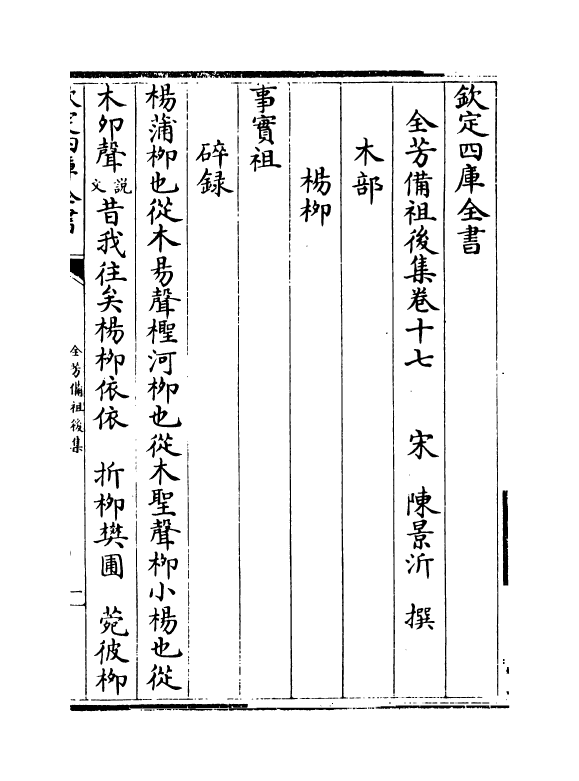 欽定四庫全書
全芳備祖後集卷十七　宋　陳景沂　撰
木部
楊柳
事實祖
碎録
楊蒲柳也從木昜聲檉河柳也從木聖聲柳小楊也從
木夘聲說文昔我往矣楊柳依依　折柳樊圃　菀彼柳
欽定四庫全書
全芳備祖後集
一